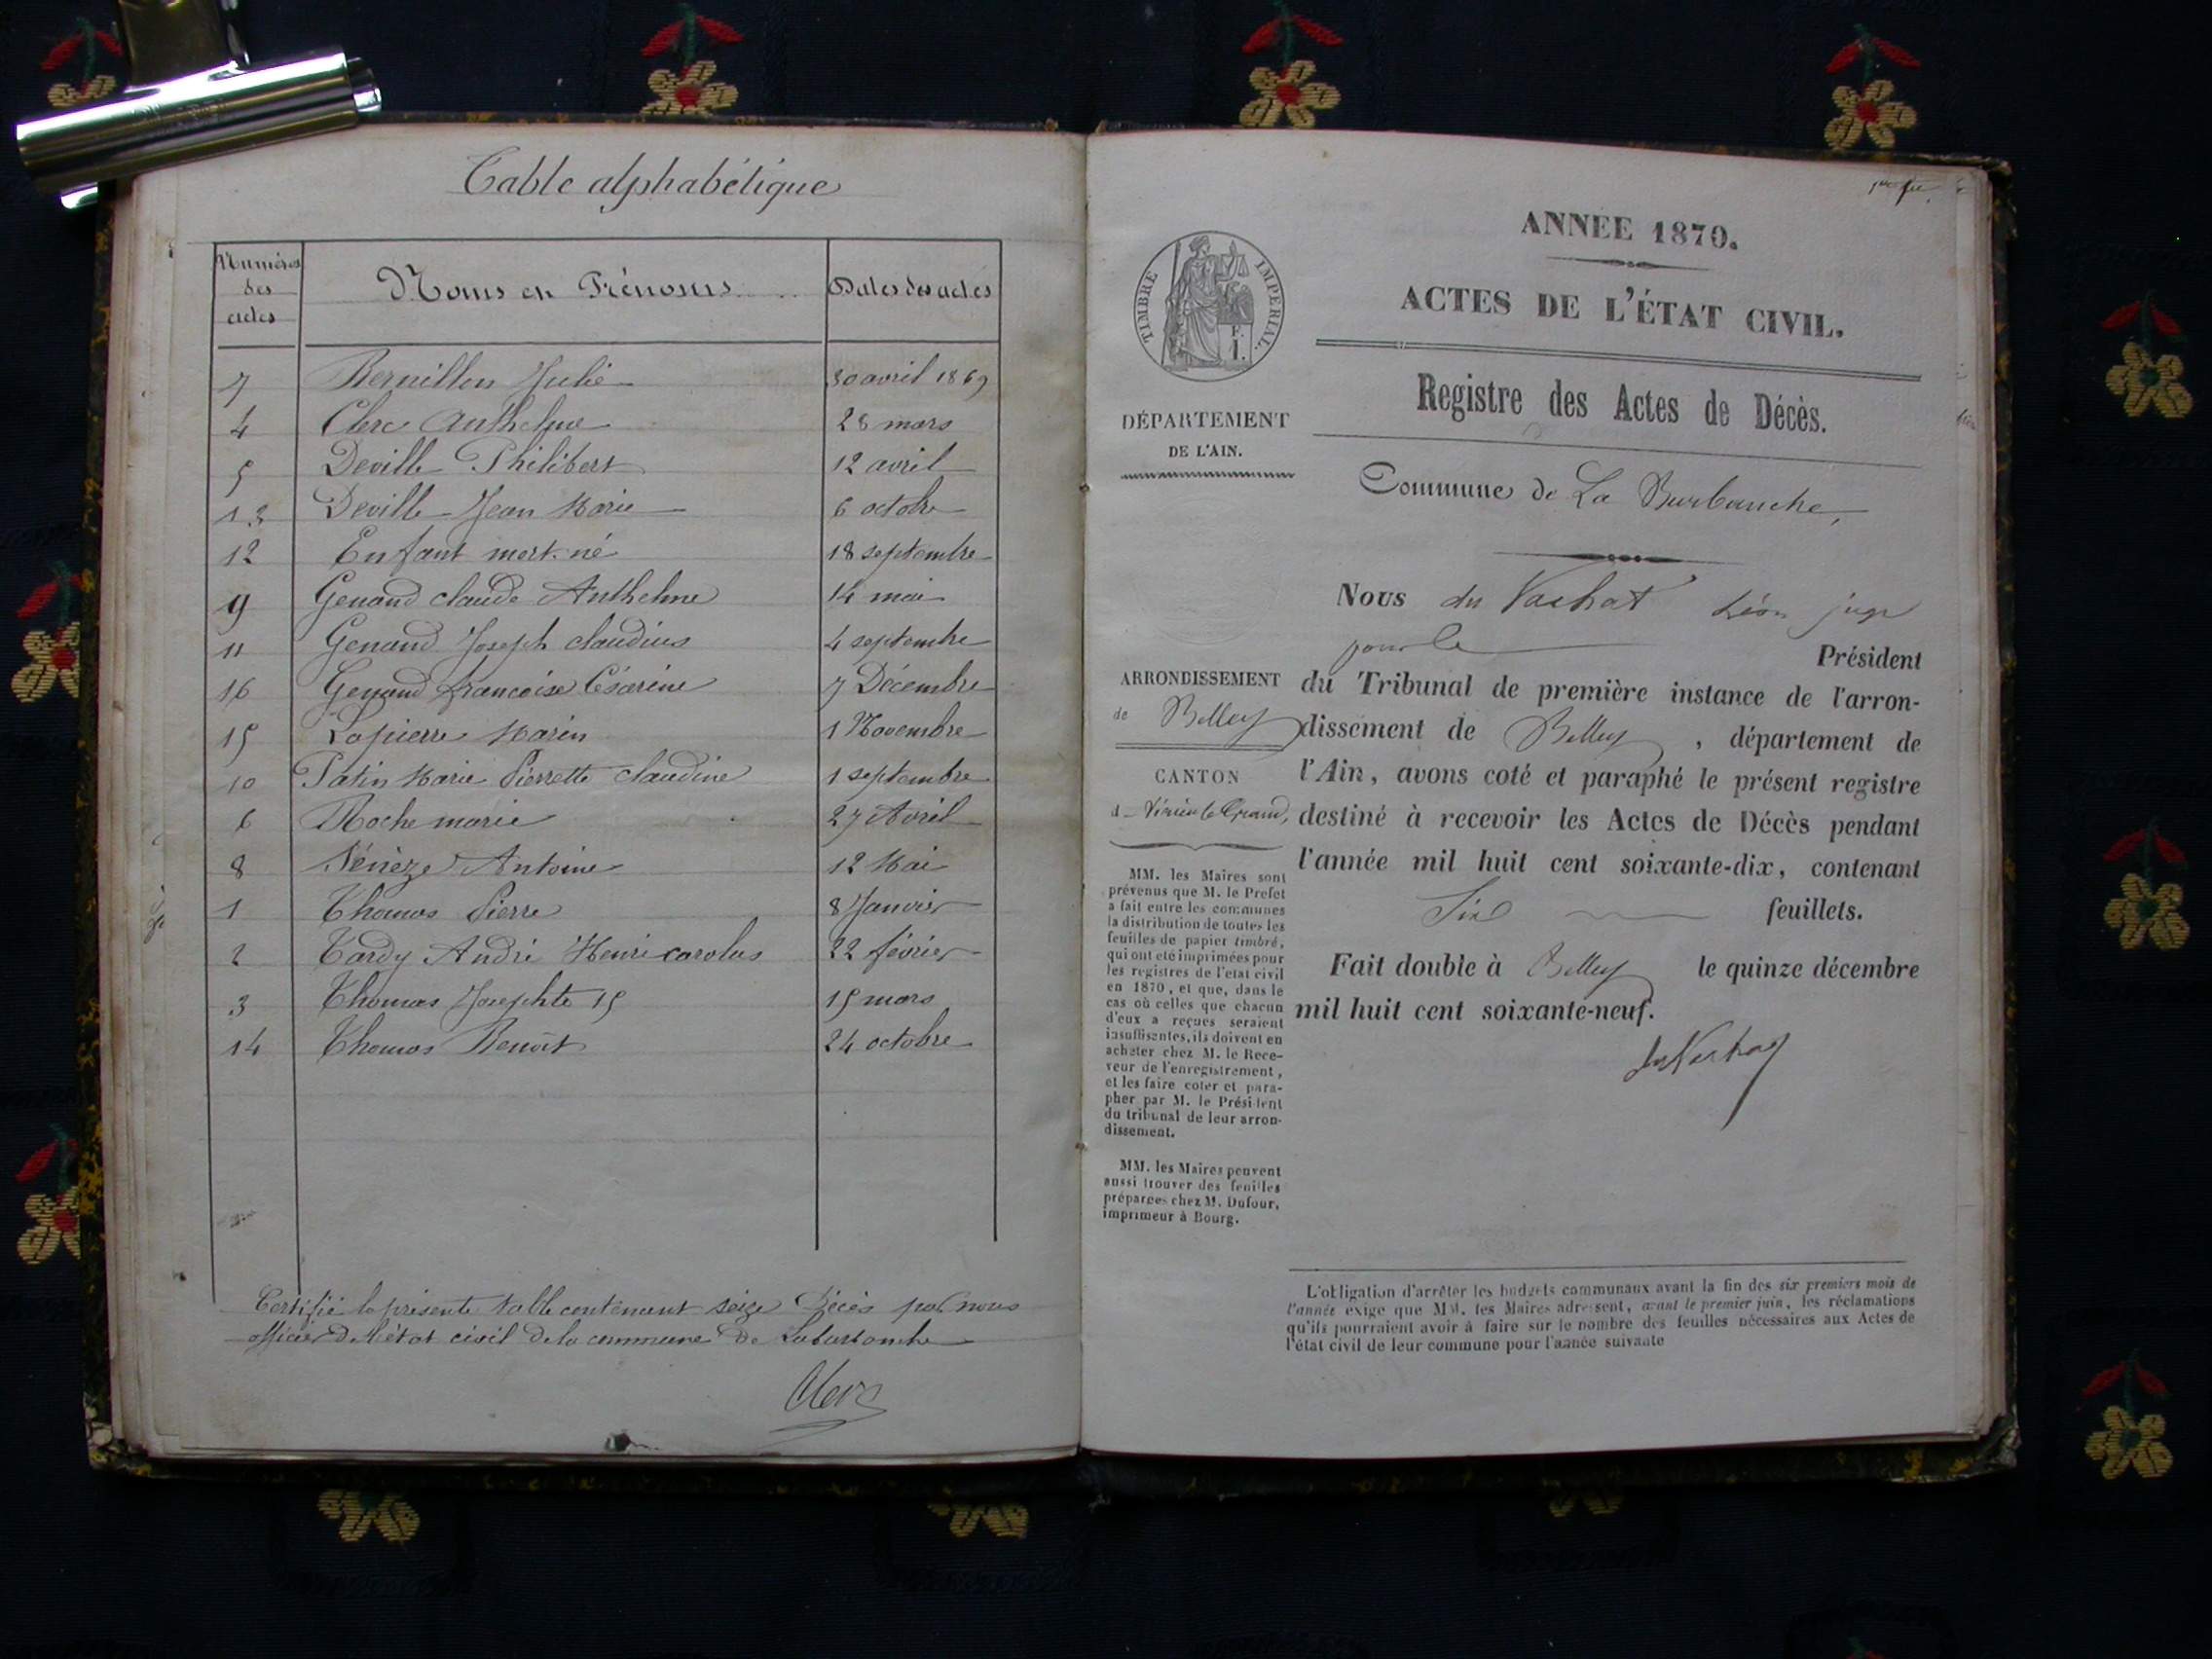 Table alphabétique
Numéros des actes Noms et Prénoms Dates des actes
7 Bernillon Julie 30 avril 1869
4 Clerc Anthelme 28 mars
5 Deville Philibert 12 avril
13 Deville Jean Marie 6 octobre
12 Enfant mort-né 18 septembre
9 Genand claude Anthelme 14 mai
11 Genand Joseph claudius 4 septembre
16 Genand françoise Césarine 7 Décembre
15 Lapierre Marin 1 Novembre
10 Patin Marie Pierrette claudine 1 septembre
6 Roche marie 27 Avril
8 Antoine 12 Mai
1 Thomas Pierre 8 Janvier
2 Tardy André Henri carolus 22 février
3 Thomas Josephte 15 15 mars
14 Thomas Benoit 24 octobre
Certifié la présente table contenant seize Décès par nous
officier de l'état civil de la commune de Laburbanche
Clerc
1er fet
ANNÉE 1870.
ACTES DE L'ÉTAT CIVIL.
TIMBRE IMPERIAL.
Registre des Actes de Décès.
DÉPARTEMENT
DE L'AIN.
Commune de La Burbanche,
Nous du Vachat Léon juge
pour le Président
ARRONDISSEMENT
de Belley
CANTON
de Virieu le Grand,
du Tribunal de première instance de l'arron-
dissement de Belley, département de
l'Ain, avons coté et paraphé le présent registre
destiné à recevoir les Actes de Décès pendant
l'année mil huit cent soixante-dix, contenant
Six feuillets.
Fait double à Belley le quinze décembre
mil huit cent soixante-neuf.
du Vachat
MM. les Maires sont
prévenus que M. le Prefet
a fait entre les communes
la distribution de toutes les
feuilles de papier timbré,
qui ont été imprimées pour
les registres de l'etat civil
en 1870, et que, dans le
cas où celles que chacun
d'eux a reçues seraient
insuffisentes, ils doivent en
acheter chez M. le Rece-
veur de l'enregistrement,
et les faire coter et para-
pher par M. le Président
du tribunal de leur arron-
dissement.
MM. les Maires peuvent
aussi trouver des feuilles
préparées chez M. Dufour,
imprimeur à Bourg.
L'obligation d'arrêter les budgets communaux avant la fin des six premiers mois de
l'année exige que MM. les Maires adressent, avant le premier juin, les réclamations
qu'ils pourraient avoir à faire sur le nombre des feuilles nécessaires aux Actes de
l'état civil de leur commune pour l'année suivante